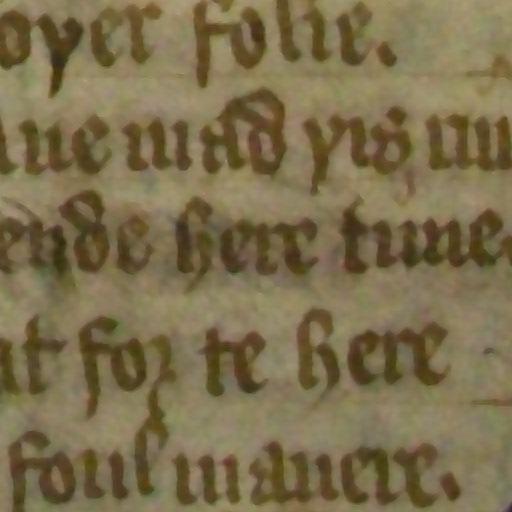 oyer folie.
ue mad yis nu
ende here time.
at for te here
foul manere.